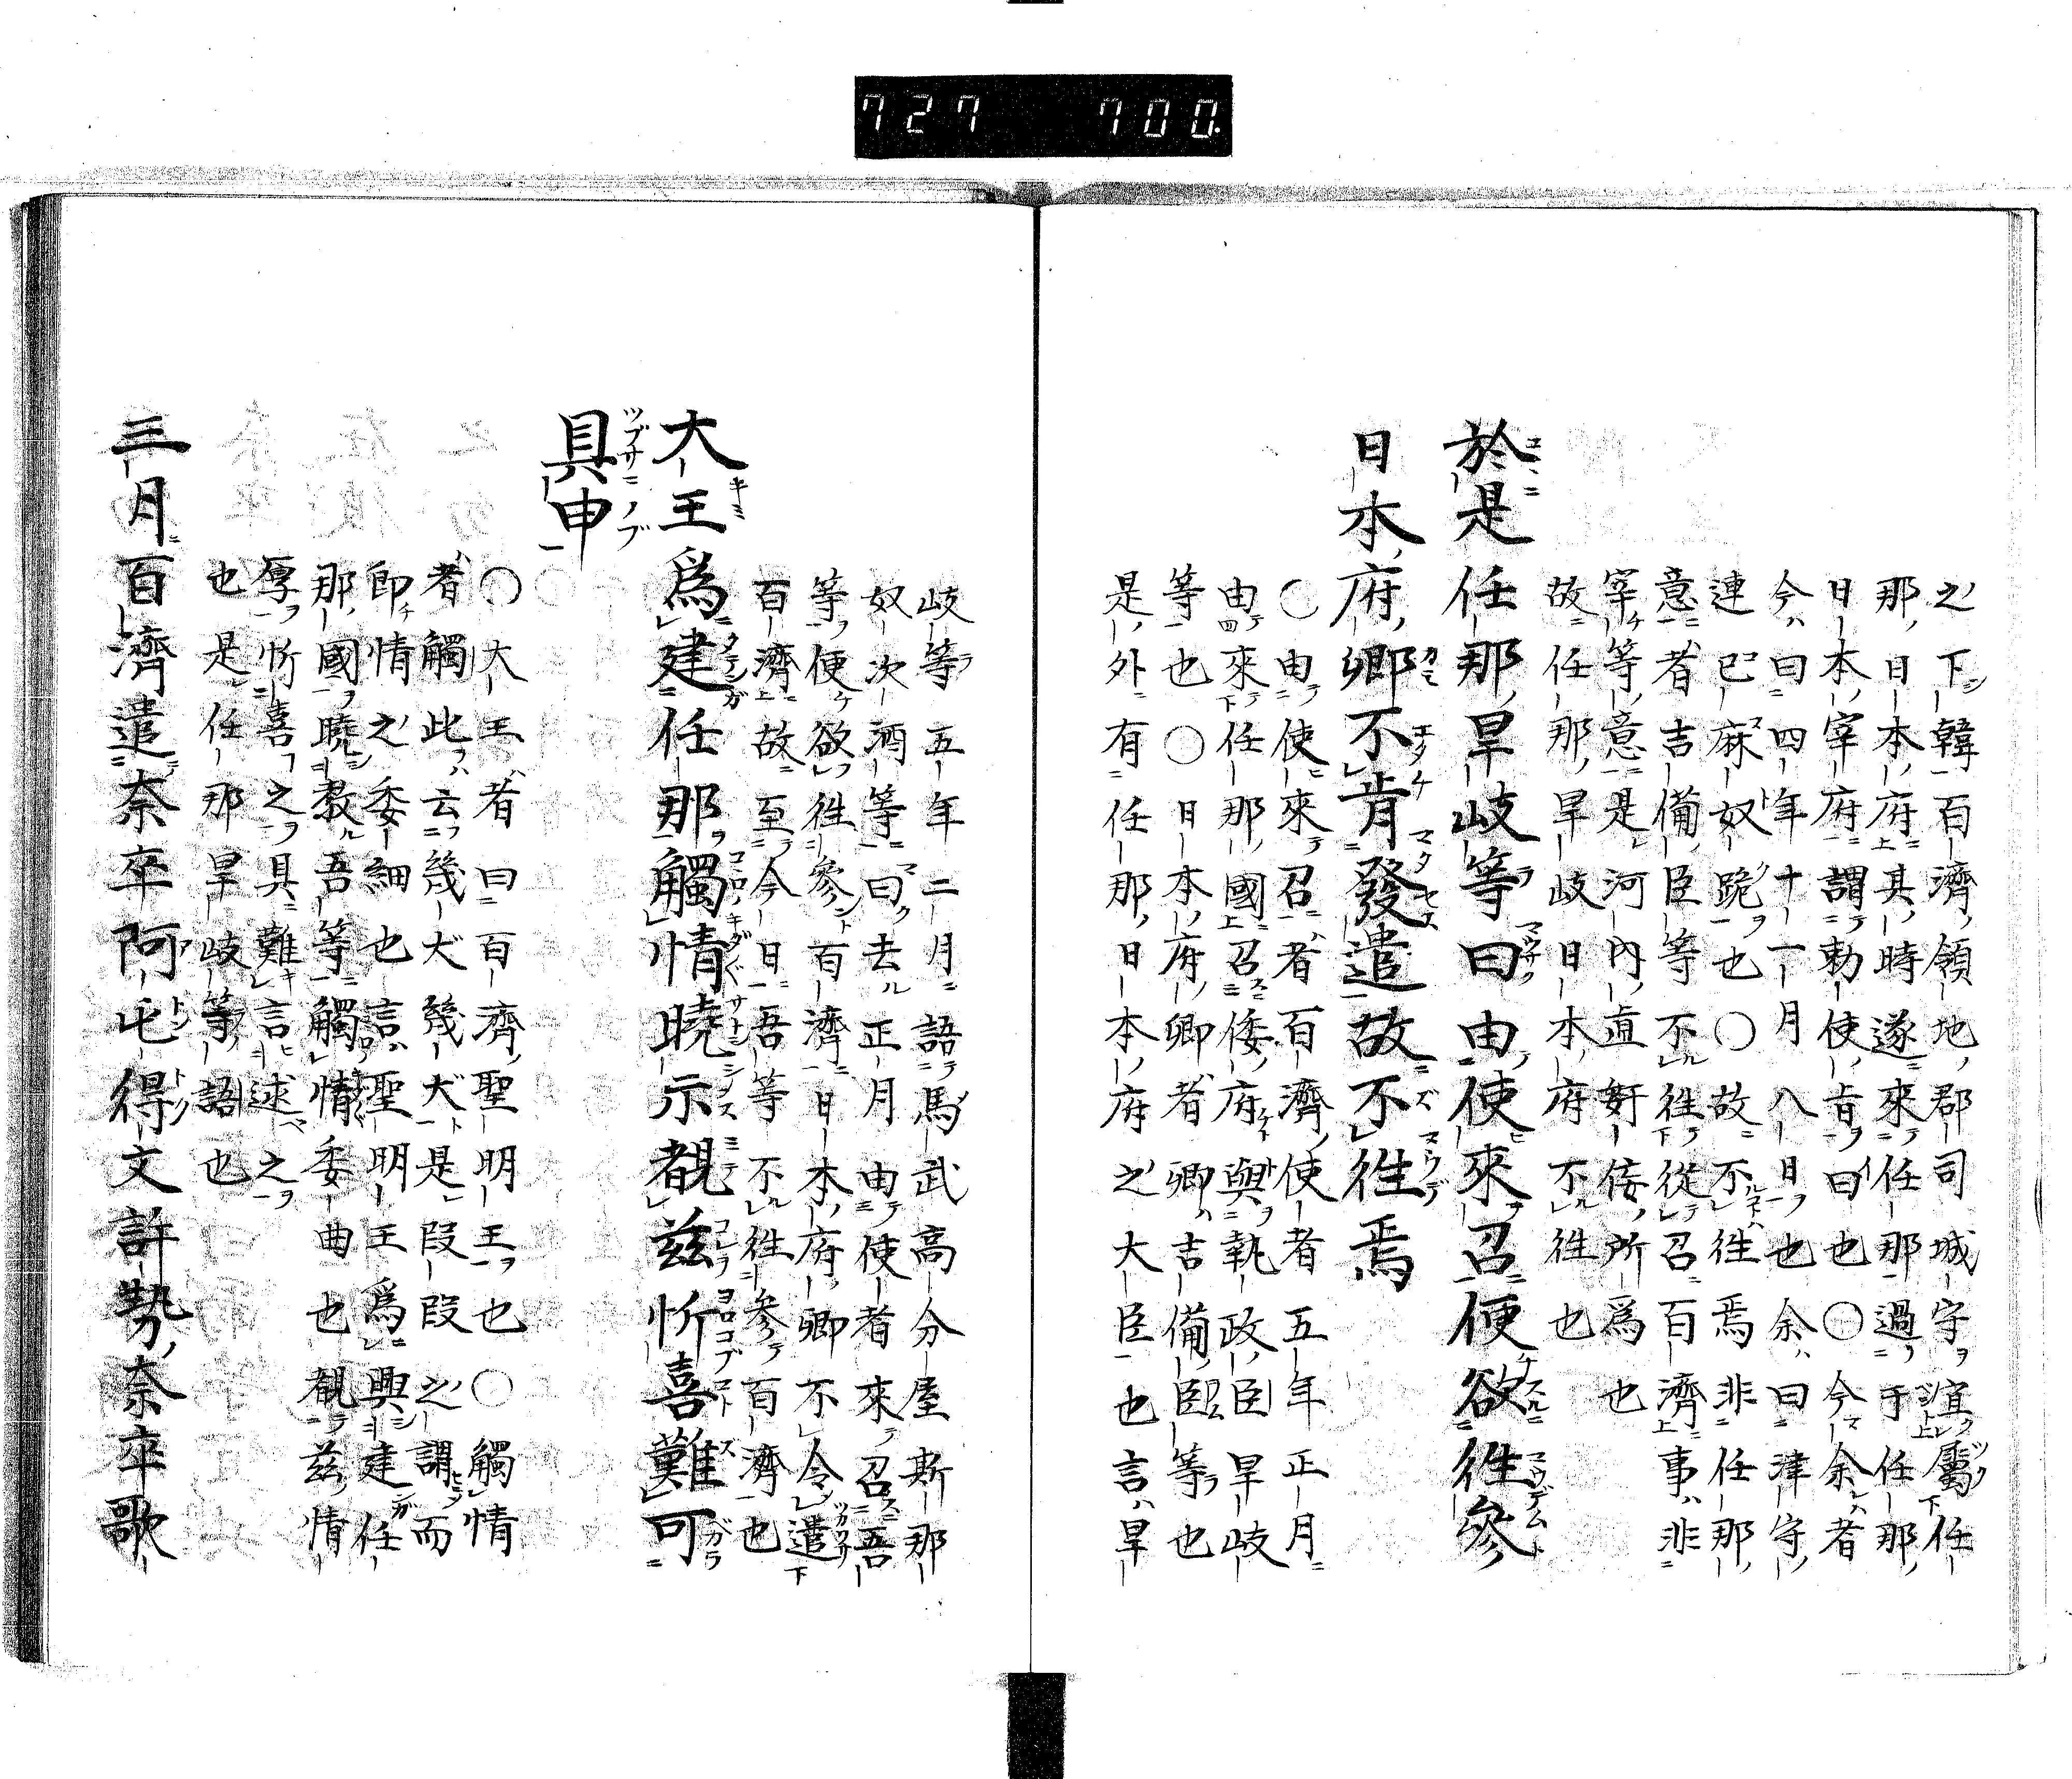 727 700.
之下韓百濟領地郡司城守宜屬任
那日本府其時遂來任那過于任那
日本宰府謂勅使旨曰也〇今余者
今曰四年十一月八日也余曰津守
連巳麻奴跪也〇故不往焉非任那
意者吉備臣等不往從召百濟事非
宰等意是河內直奸佞所爲也
故任那旱岐日本府不往也
於是任那旱岐等曰由使來召便欲往參
日本府卿不肯發遣故不往焉
〇由使來召者百濟使者五年正月
由來任那國召倭府與執政臣旱岐
等也〇日本府卿者卿吉備臣等也
是外有任那日本府之大臣也言旱
岐等五年二月語馬武高分屋斯那
奴次酒等曰去正月由使者來召吾
等便欲往參百濟日本府卿不令遣
百濟故至今日吾等不往參百濟也
大王爲建任那觸情曉示覩茲忻喜難可
具申
〇大王者曰百濟聖明王也〇觸情
者觸此云幾犬幾犬是段段之謂而
卽情之委細也言聖明王爲興建任
那國曉敎吾等觸情委曲也覩茲情
厚忻喜之具難言述之
也是任那旱岐等語也
三月百濟遣奈卒阿乇得文許勢奈卒歌